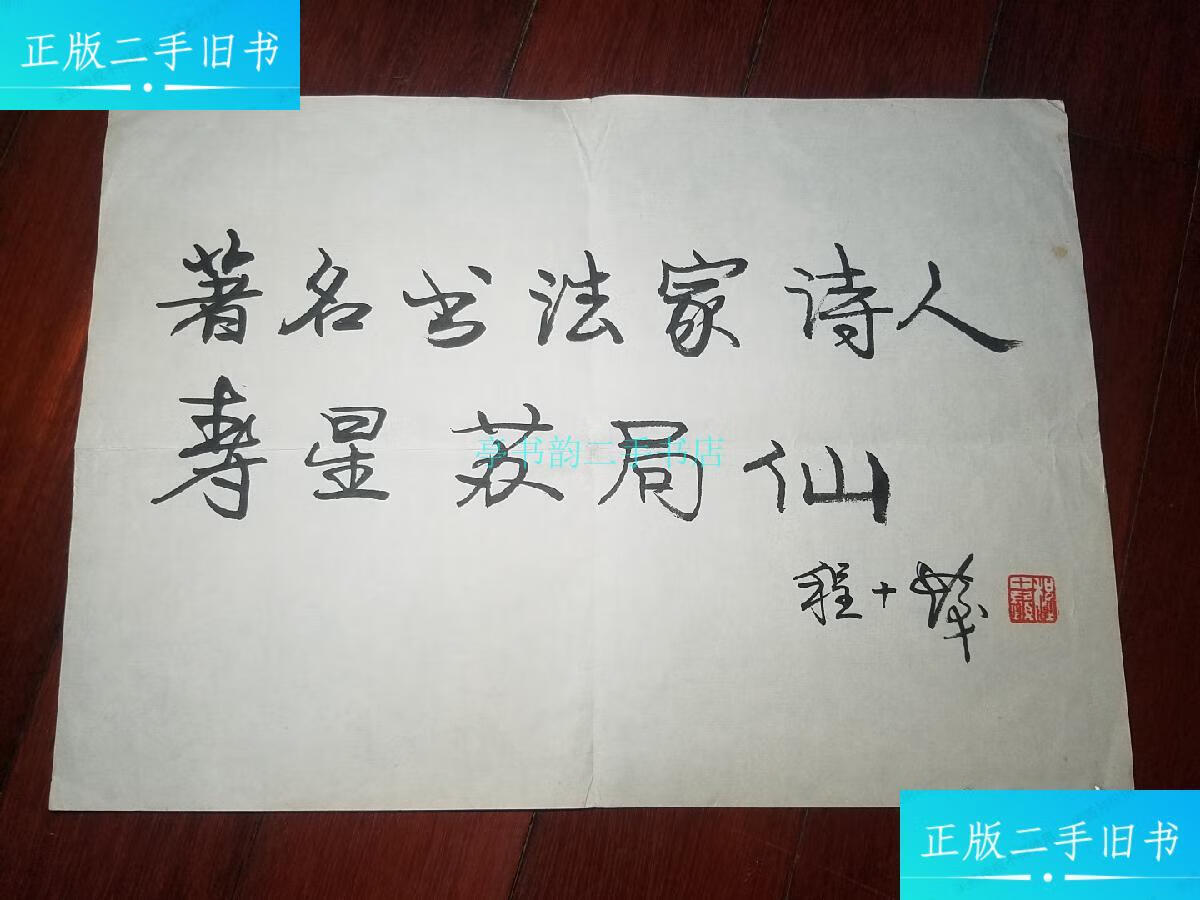 正版二手旧书
著名书法家诗人
寿星苏局仙
亭书韵二手书店
程十发
正版二手旧书